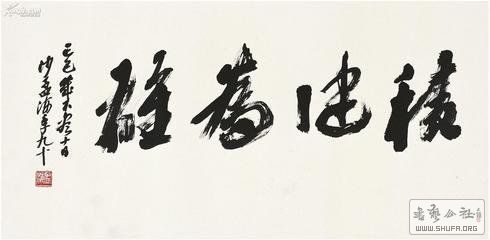 積健為雄
己巳歲不盡十日
沙孟海年九十
書藝公社
WWW.SHUFA.ORG